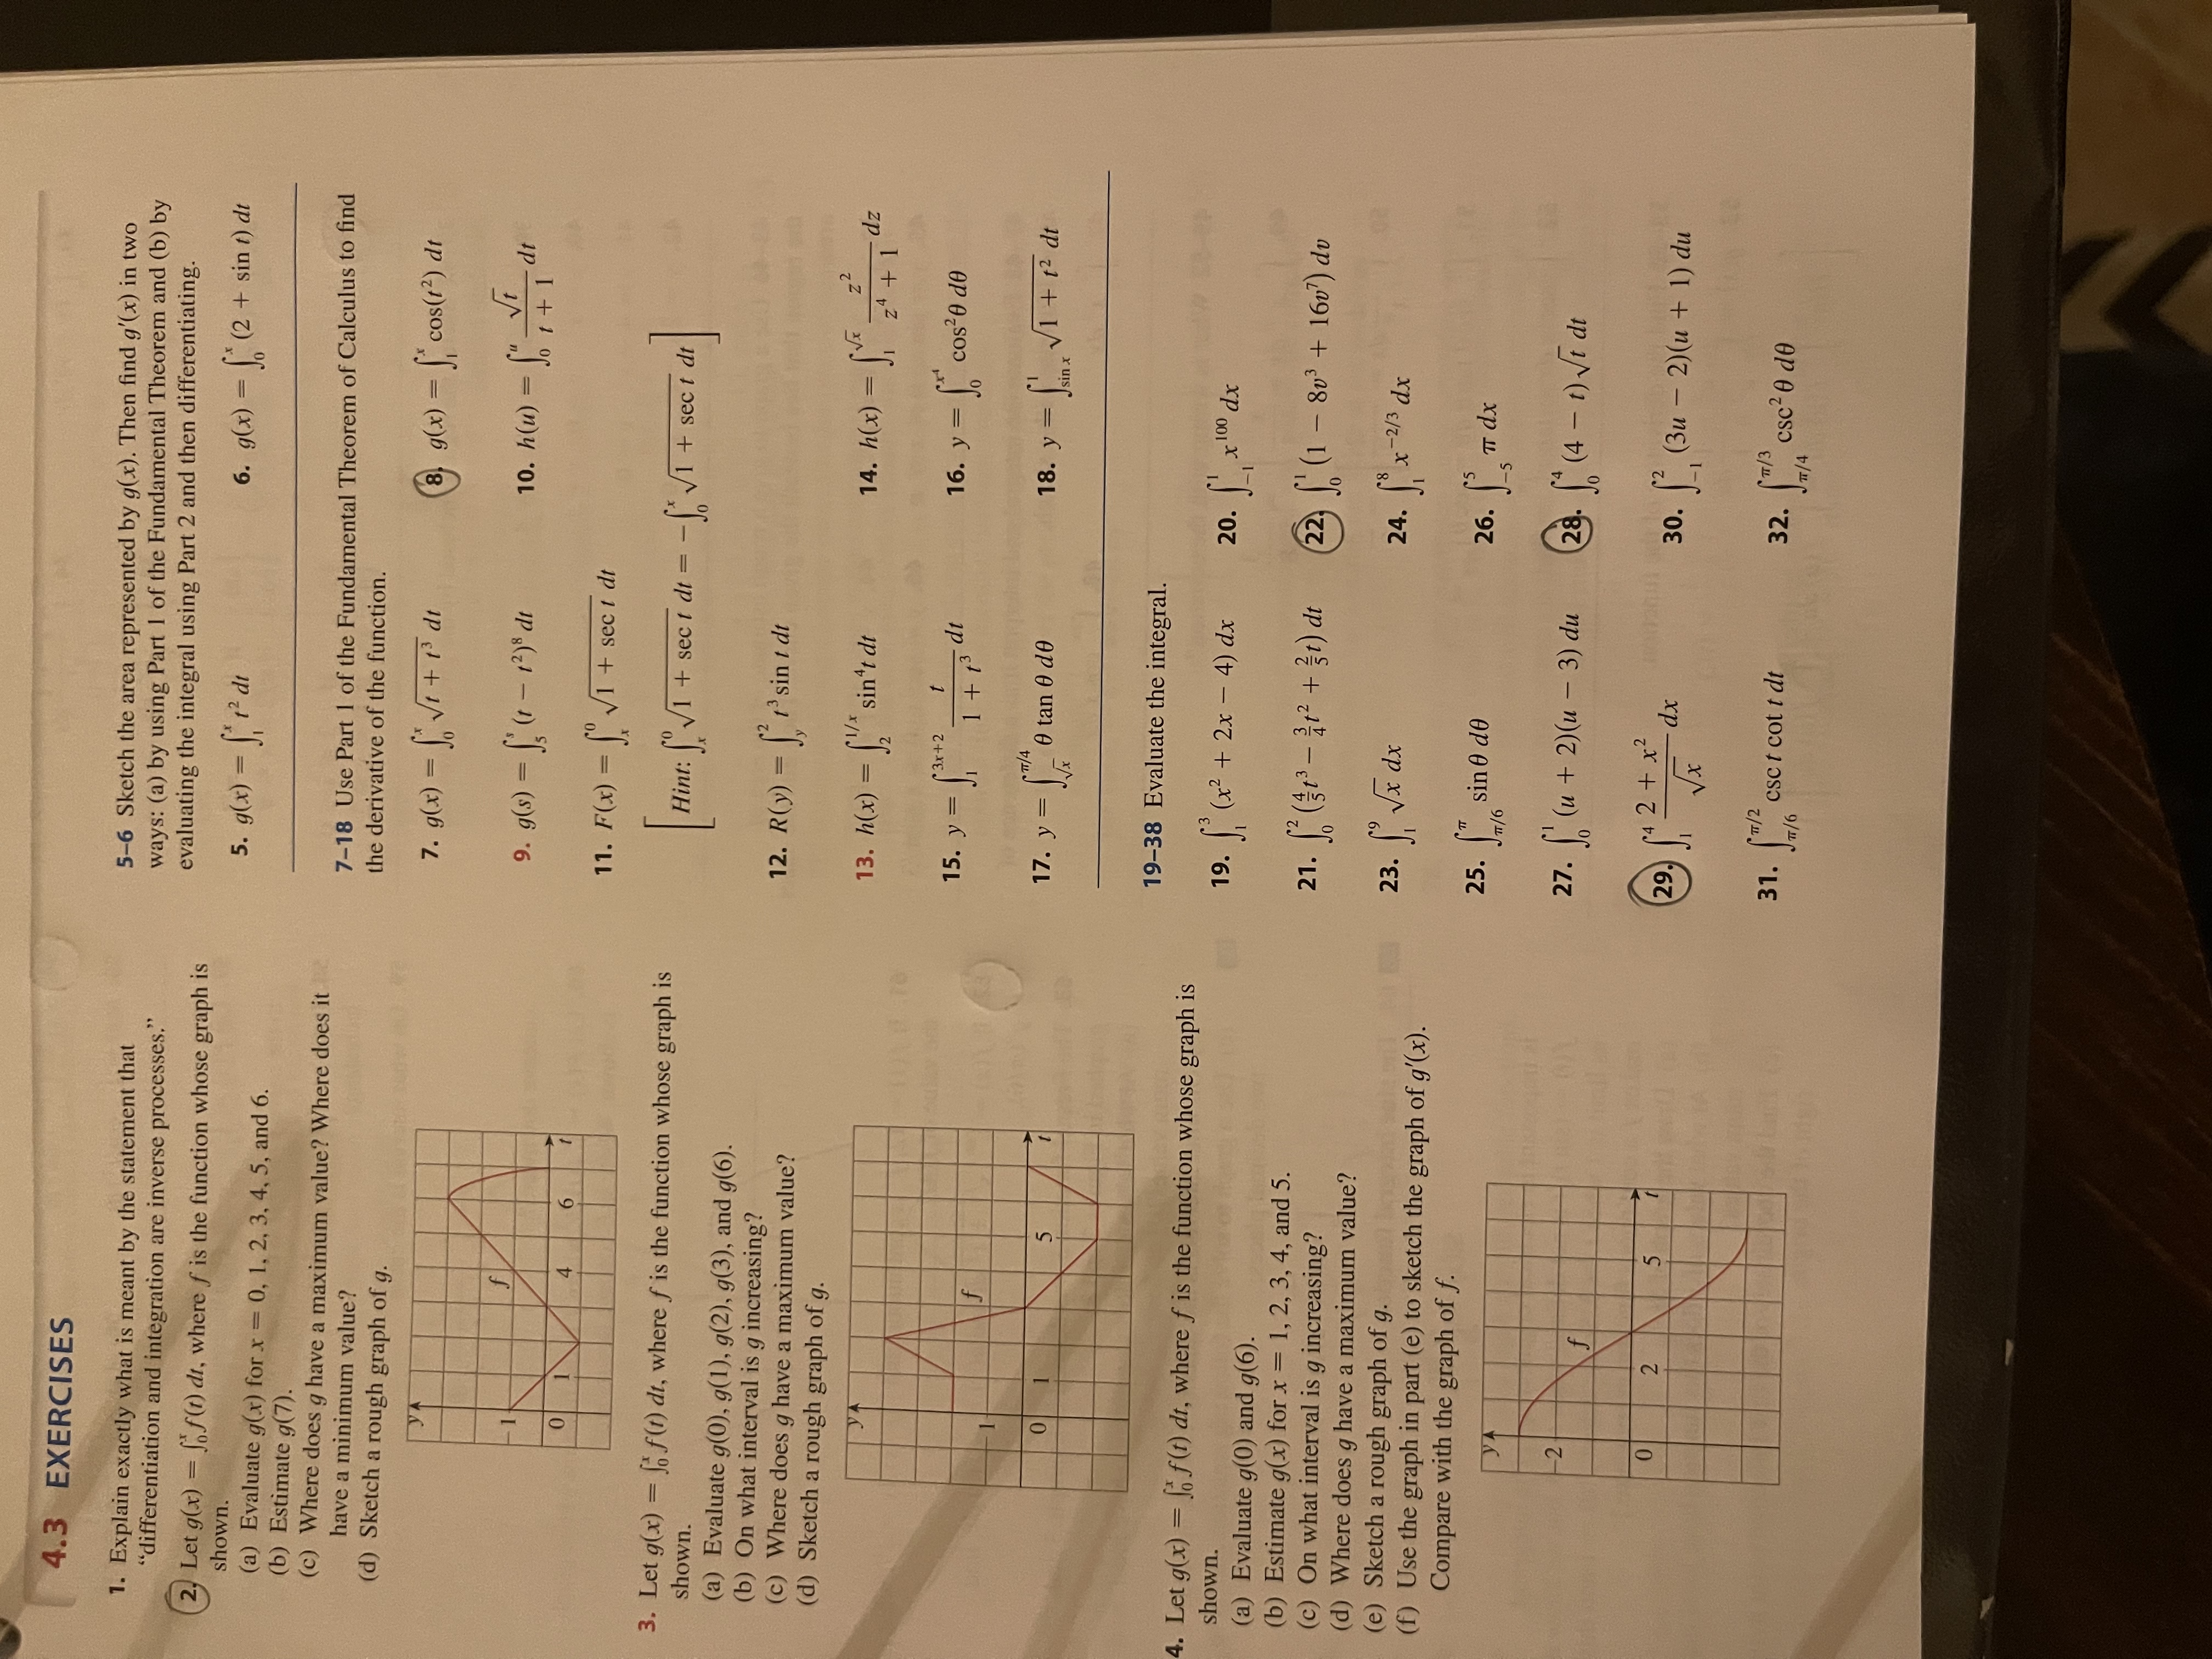 4.3 EXERCISES
1. Explain exactly what is meant by the statement that
“differentiation and integration are inverse processes.”
2. Let g(x) = ∫₀ˣ f(t) dt, where f is the function whose graph is
shown.
(a) Evaluate g(x) for x = 0, 1, 2, 3, 4, 5, and 6.
(b) Estimate g(7).
(c) Where does g have a maximum value? Where does it
have a minimum value?
(d) Sketch a rough graph of g.
y
1
f
0
1
4
6
t
3. Let g(x) = ∫₀ˣ f(t) dt, where f is the function whose graph is
shown.
(a) Evaluate g(0), g(1), g(2), g(3), and g(6).
(b) On what interval is g increasing?
(c) Where does g have a maximum value?
(d) Sketch a rough graph of g.
y
f
1
0
1
5
t
4. Let g(x) = ∫₀ˣ f(t) dt, where f is the function whose graph is
shown.
(a) Evaluate g(0) and g(6).
(b) Estimate g(x) for x = 1, 2, 3, 4, and 5.
(c) On what interval is g increasing?
(d) Where does g have a maximum value?
(e) Sketch a rough graph of g.
(f) Use the graph in part (e) to sketch the graph of g′(x).
Compare with the graph of f.
y
2
f
0
2
5
t
5–6 Sketch the area represented by g(x). Then find g′(x) in two
ways: (a) by using Part 1 of the Fundamental Theorem and (b) by
evaluating the integral using Part 2 and then differentiating.
5. g(x) = ∫₁ˣ t² dt 6. g(x) = ∫₀ˣ (2 + sin t) dt
7–18 Use Part 1 of the Fundamental Theorem of Calculus to find
the derivative of the function.
7. g(x) = ∫₀ˣ √(t + t³) dt 8. g(x) = ∫₁ˣ cos(t²) dt
9. g(s) = ∫₅ˢ (t − t²)⁸ dt 10. h(u) = ∫₀ᵘ √t/(t + 1) dt
11. F(x) = ∫ₓ⁰ √(1 + sec t) dt
[Hint: ∫ₓ⁰ √(1 + sec t) dt = −∫₀ˣ √(1 + sec t) dt]
12. R(y) = ∫_y^2 t³ sin t dt
13. h(x) = ∫_2^(1/x) sin⁴t dt 14. h(x) = ∫_1^(√x) z²/(z⁴ + 1) dz
15. y = ∫_1^(3x+2) t/(1 + t³) dt 16. y = ∫_0^(x⁴) cos²θ dθ
17. y = ∫_(√x)^(π/4) θ tan θ dθ 18. y = ∫_(sin x)^1 √(1 + t²) dt
19–38 Evaluate the integral.
19. ∫₁³ (x² + 2x − 4) dx 20. ∫₋₁¹ x¹⁰⁰ dx
21. ∫₀² (4/5 t³ − 3/4 t² + 2/5 t) dt 22. ∫₀¹ (1 − 8v³ + 16v⁷) dv
23. ∫₁⁹ √x dx 24. ∫₁⁸ x^(−2/3) dx
25. ∫_(π/6)^π sin θ dθ 26. ∫₋₅⁵ π dx
27. ∫₀¹ (u + 2)(u − 3) du 28. ∫₀⁴ (4 − t)√t dt
29. ∫₁⁴ (2 + x²)/√x dx 30. ∫₋₁² (3u − 2)(u + 1) du
31. ∫_(π/6)^(π/2) csc t cot t dt 32. ∫_(π/4)^(π/3) csc²θ dθ